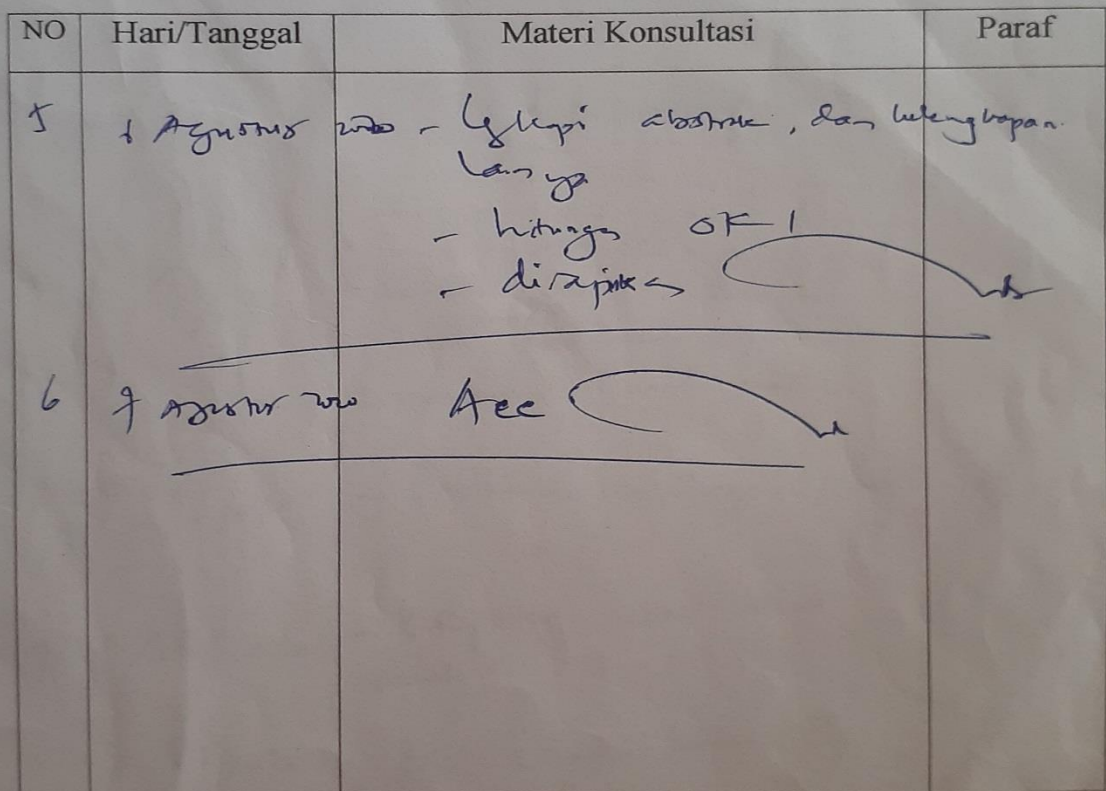 NO Hari/Tanggal Materi Konsultasi Paraf
5 Agustus 2020 - lengkapi abstrak, dan kelengkapan
lainnya
- hitungan OK!
- dirapikan
6 7 Agustus 2020 Acc